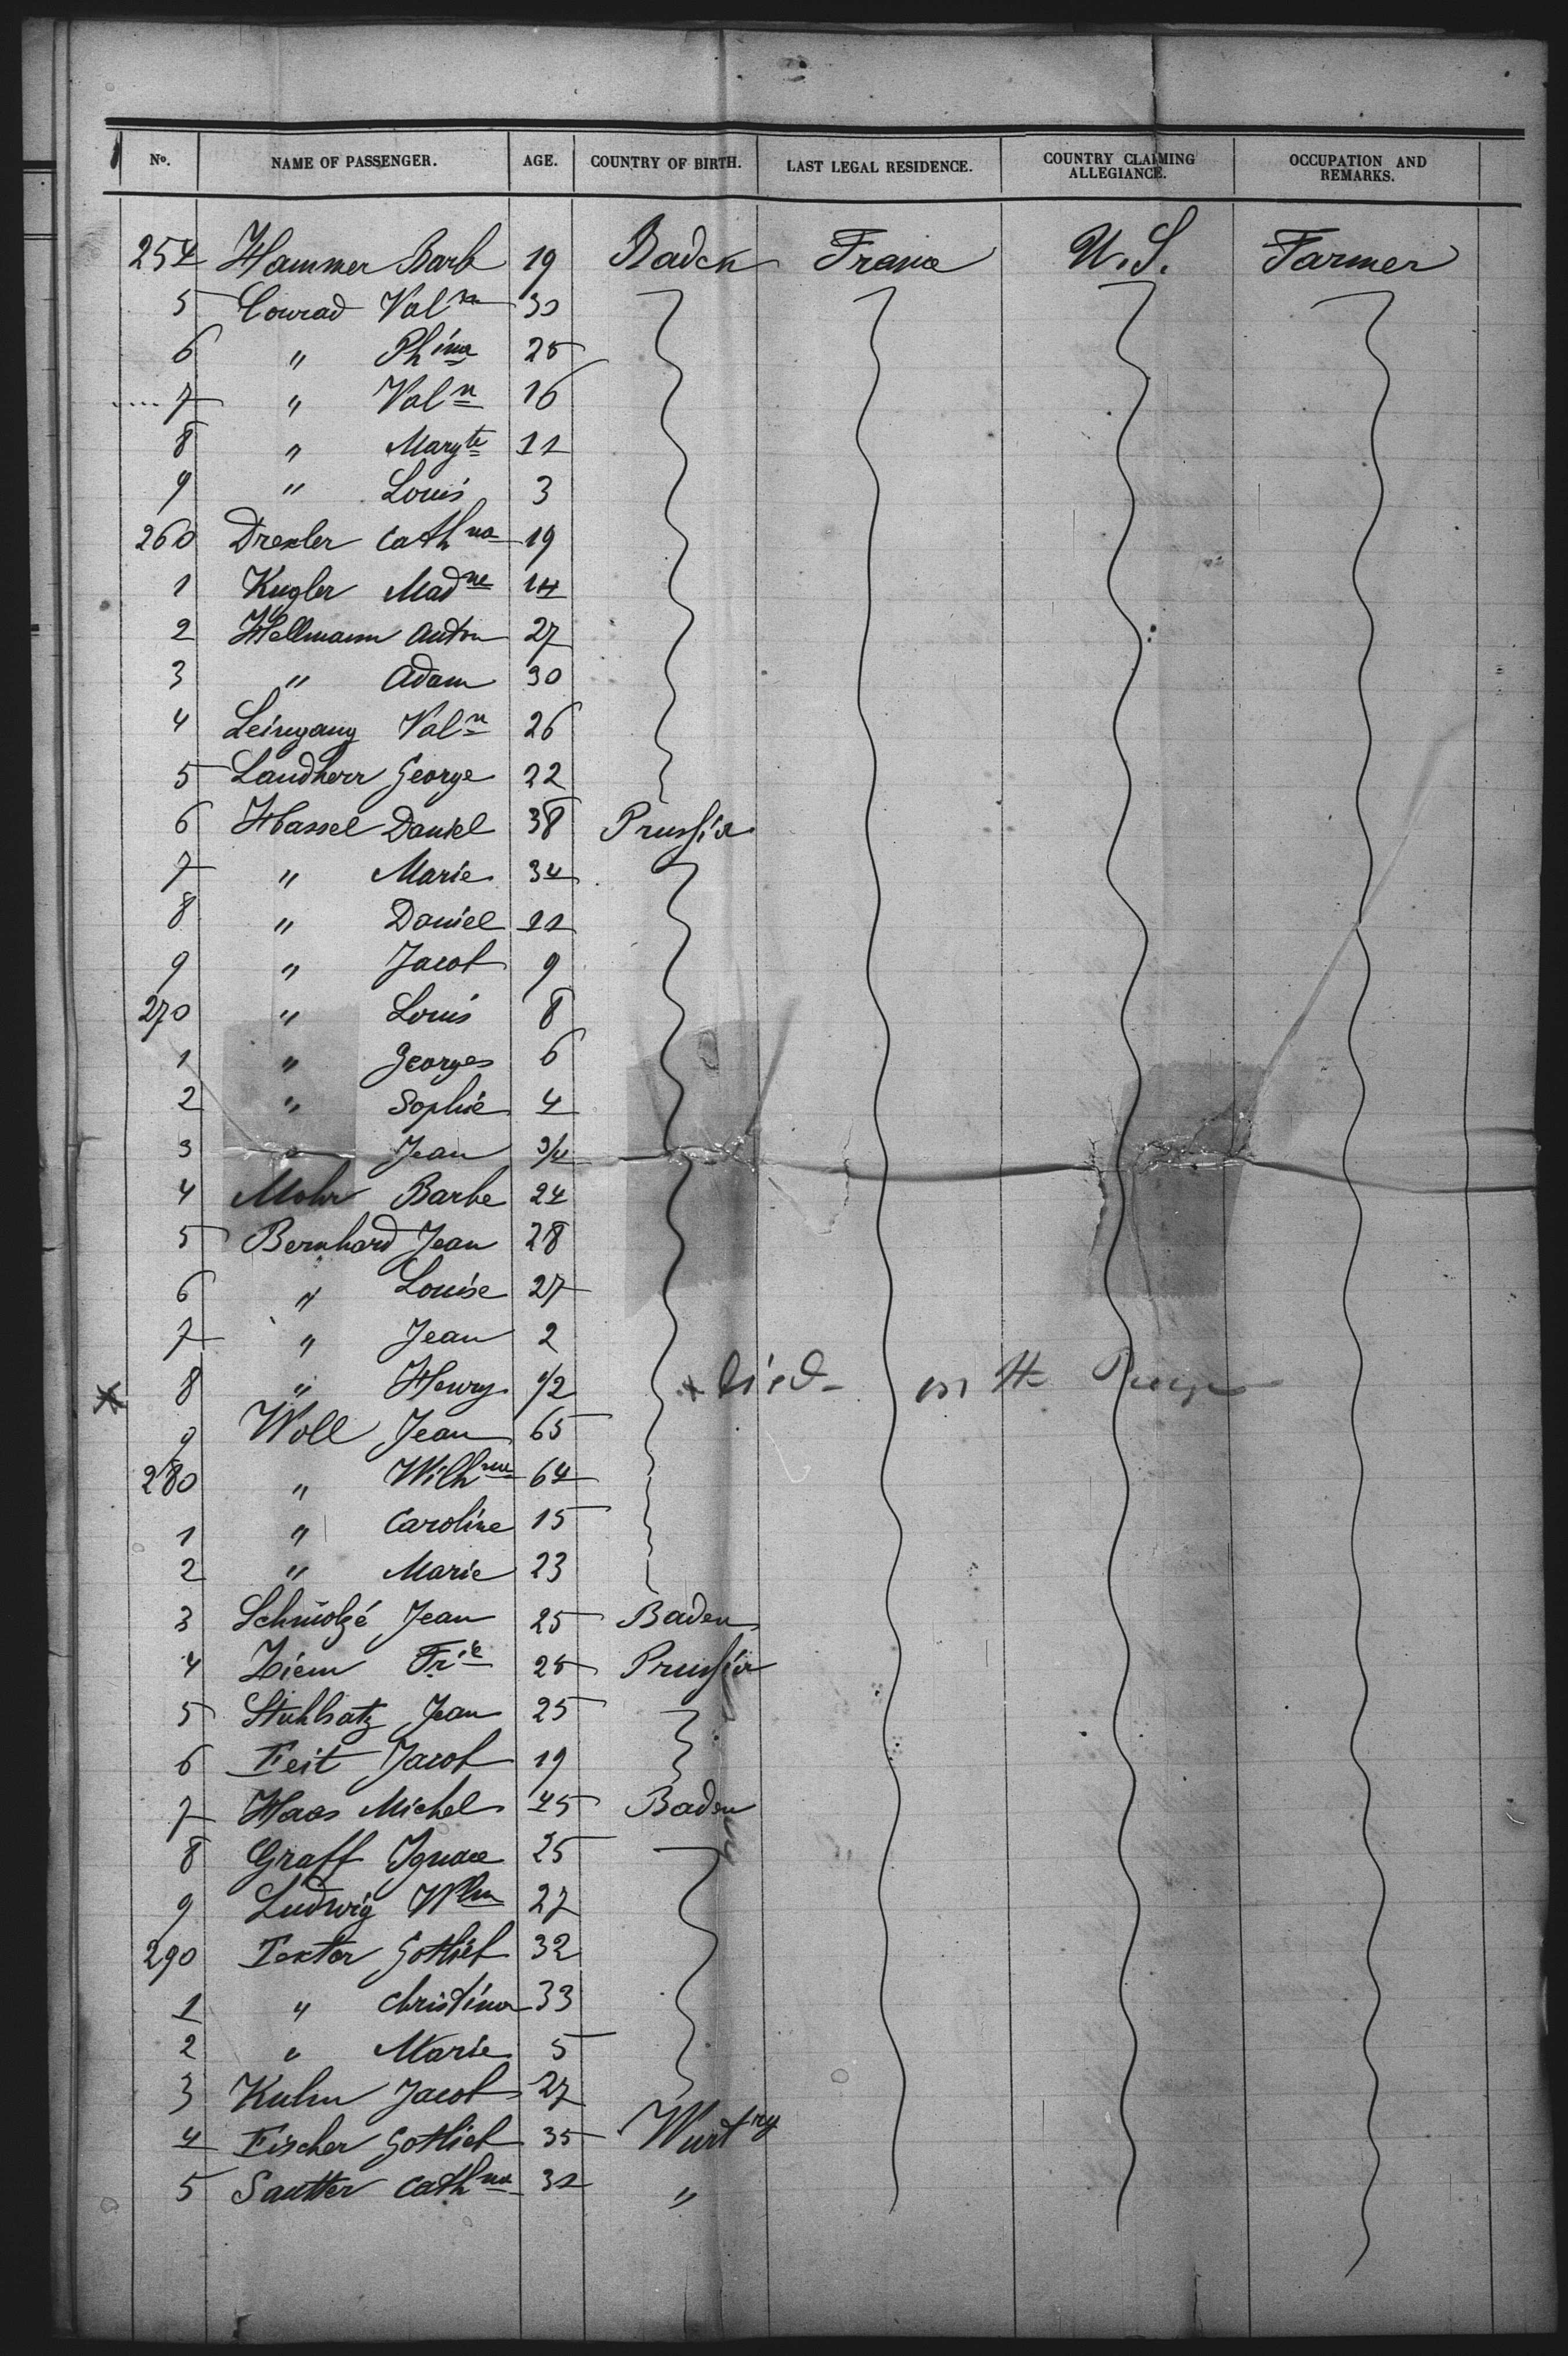 No. NAME OF PASSENGER. AGE. COUNTRY OF BIRTH. LAST LEGAL RESIDENCE. COUNTRY CLAIMING ALLEGIANCE. OCCUPATION AND REMARKS.
254 Hammer Barb 19 Baden France U.S. Farmer
5 Conrad Val<sup>n</sup> 30
6 " Ph<sup>ina</sup> 25
7 " Val<sup>n</sup> 16
8 " Marg<sup>te</sup> 11
9 " Louis 3
260 Drexler Cath<sup>na</sup> 19
1 Kugler Mad<sup>ne</sup> 14
2 Hellmann Anton 27
3 " Adam 30
4 Leingang Val<sup>n</sup> 26
5 Landherr George 22
6 Hassel Daniel 38 Prussia
7 " Marie 34
8 " Daniel 11
9 " Jacob 9
270 " Louis 8
1 " Georges 6
2 " Sophie 4
3 " Jean 3/4
4 Mohr Barbe 24
5 Bernhard Jean 28
6 " Louise 27
7 " Jean 2
8 " Henry 1/2 died on the
9 Woll Jean 65
280 " Wilh<sup>ne</sup> 64
1 " Caroline 15
2 " Marie 23
3 Schmolzé Jean 25 Baden
4 Ziem Fr<sup>ie</sup> 25 Prussia
5 Stuhlsatz Jean 25
6 Feit Jacob 19
7 Haas Michel 45 Baden
8 Graff Ignace 25
9 Ludwig W<sup>lm</sup> 27
290 Textor Gotlieb 32
1 " Christina 33
2 " Marie 5
3 Kuhn Jacob 27
4 Fischer Gotlieb 35 Wurt<sup>rg</sup>
5 Sautter Cath<sup>na</sup> 31 "